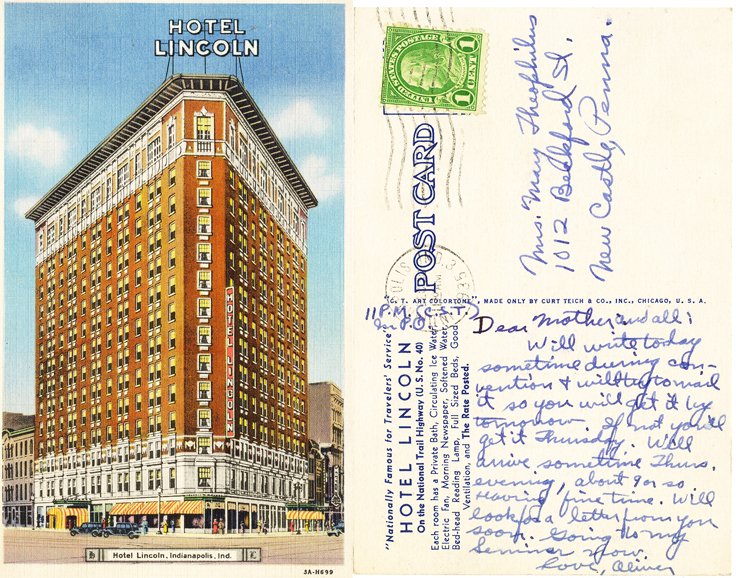 HOTEL
LINCOLN
HOTEL LINCOLN
H
Hotel Lincoln, Indianapolis, Ind.
L
5A-H699
UNITED STATES POSTAGE
1 CENT 1
POST CARD
Mrs. Mary Theophilus
1012 Beckford St.,
New Castle, Penna.
"C. T. ART COLORTONE", MADE ONLY BY CURT TEICH & CO., INC., CHICAGO, U. S. A.
"Nationally Famous for Travelers' Service"
HOTEL LINCOLN
On the National Trail Highway (U. S. No. 40)
Each room has a Private Bath, Circulating Ice Water,
Electric Fan, Morning Newspaper, Softened Water,
Bed-head Reading Lamp, Full Sized Beds, Good
Ventilation, and The Rate Posted.
11 P.M. (C.S.T.)
In P.O.
Dear Mother and all:
Will write today
sometime during con-
vention & will try to mail
it so you will get it by
tomorrow. If not you'll
get it Thursday. Will
arrive sometime Thurs.
evening, about 9 or so
Having fine time. Will
look for a letter from you
soon. Going to my
Seminar now.
Love, Oliver